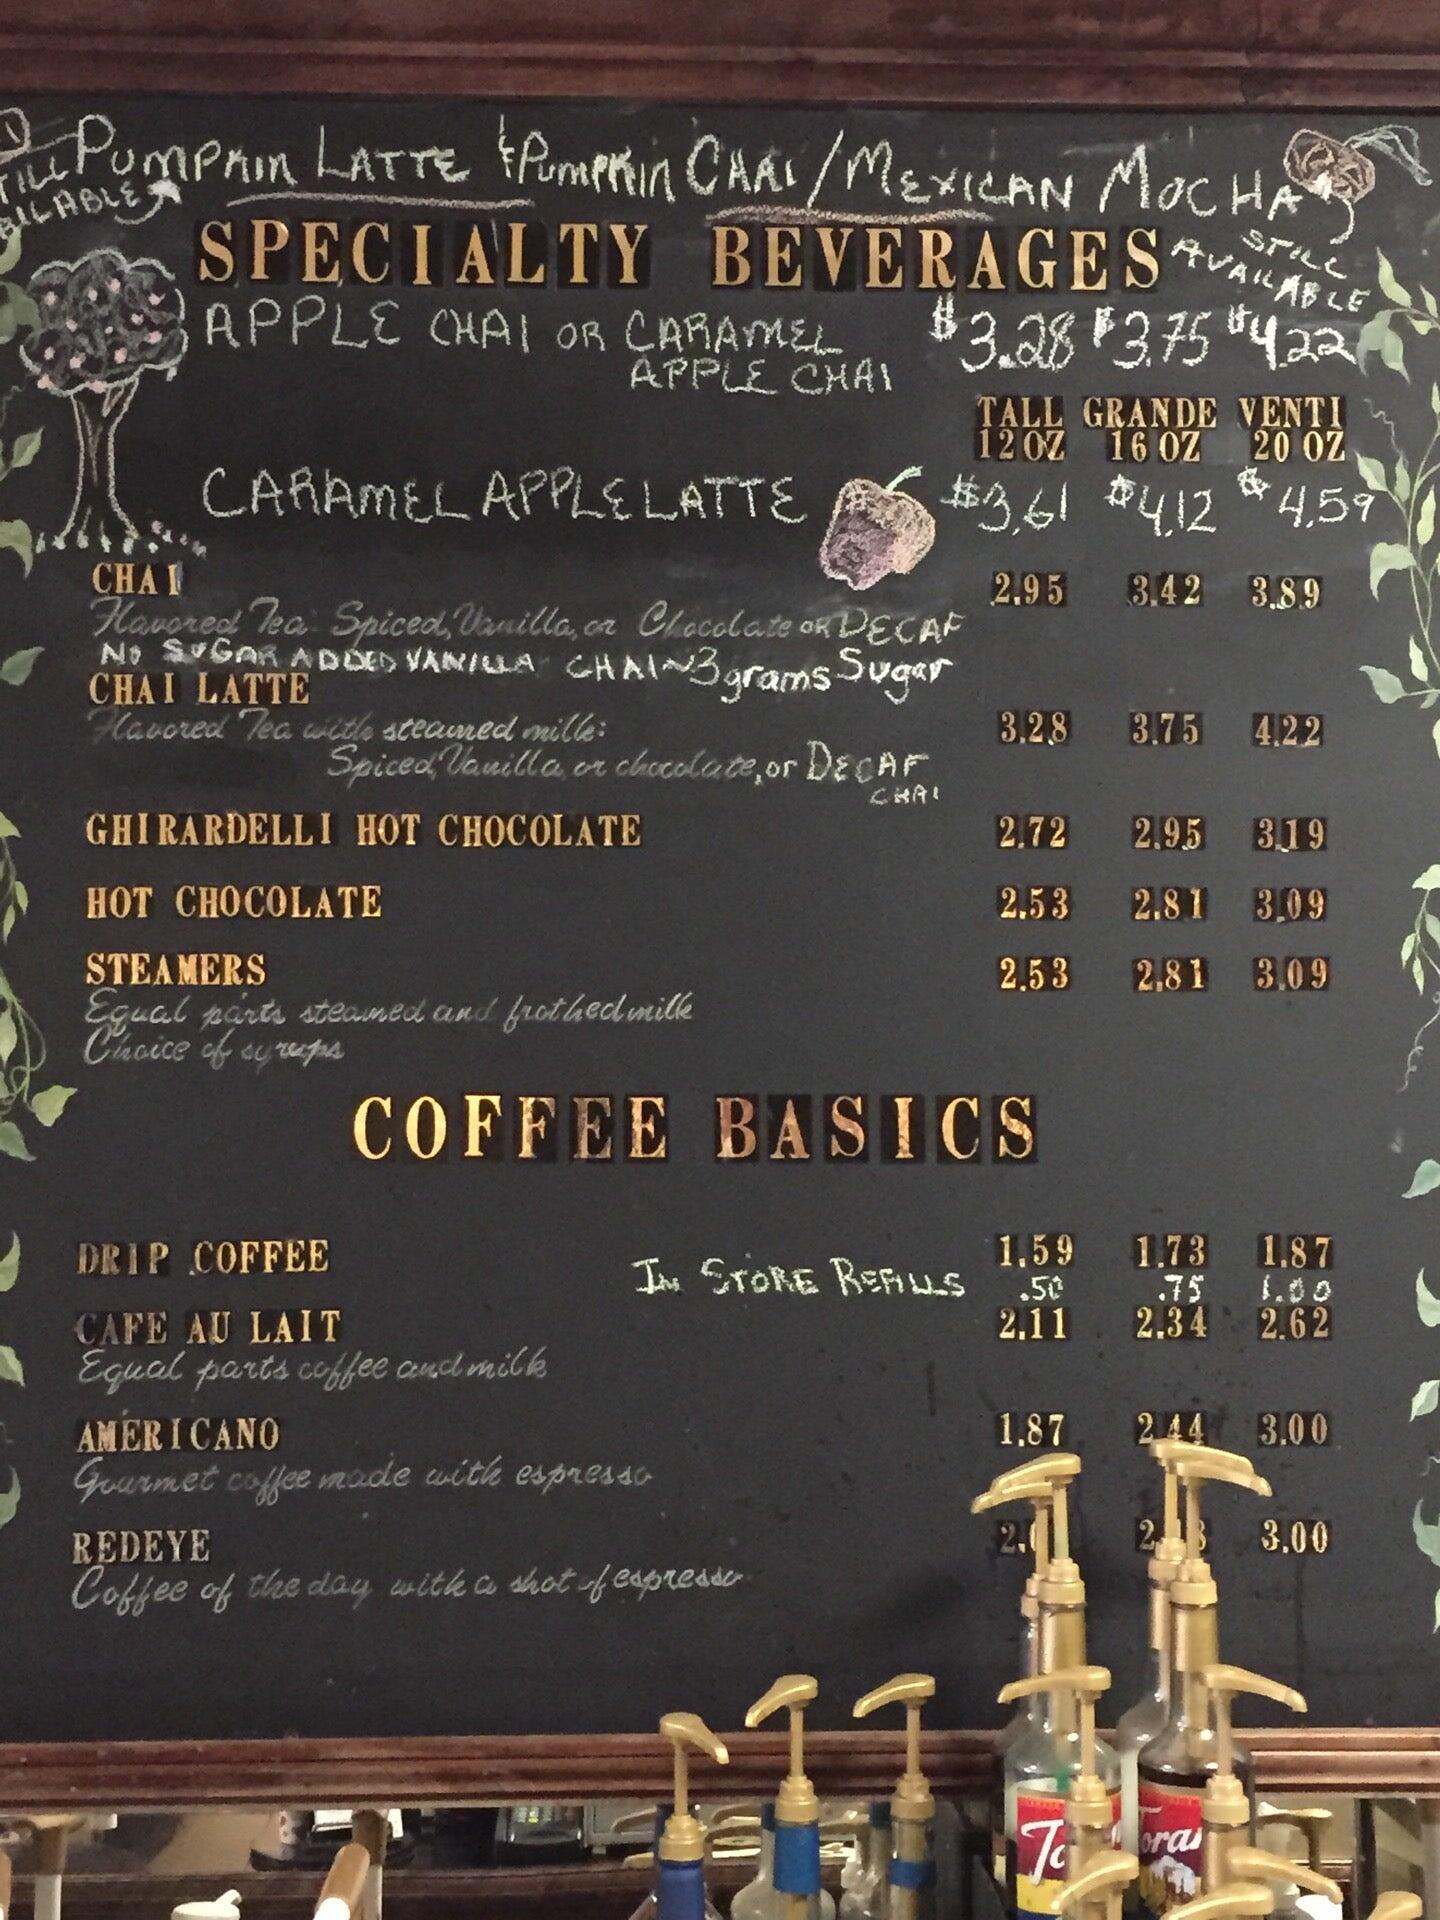 Pumpkin Latte & Pumpkin Chai / Mexican Mocha
STILL AVAILABLE
SPECIALTY BEVERAGES
APPLE CHAI OR CARAMEL APPLE CHAI $3.28 $3.75 $4.22
TALL GRANDE VENTI
12 OZ 16 OZ 20 OZ
CARAMEL APPLE LATTE $3.61 $4.12 $4.59
CHAI 2.95 3.42 3.89
Flavored Tea: Spiced, Vanilla, or Chocolate OR DECAF
NO SUGAR ADDED VANILLA CHAI ~ 3 grams Sugar
CHAI LATTE
Flavored Tea with steamed milk: 3.28 3.75 4.22
Spiced, Vanilla, or chocolate, or DECAF
CHAI
GHIRARDELLI HOT CHOCOLATE 2.72 2.95 3.19
HOT CHOCOLATE 2.53 2.81 3.09
STEAMERS 2.53 2.81 3.09
Equal parts steamed and frothed milk
Choice of syrups
COFFEE BASICS
DRIP COFFEE 1.59 1.73 1.87
In STORE REFILLS .50 .75 1.00
CAFE AU LAIT 2.11 2.34 2.62
Equal parts coffee and milk
AMERICANO 1.87 2.44 3.00
Gourmet coffee made with espresso
REDEYE 3.00
Coffee of the day with a shot of espresso